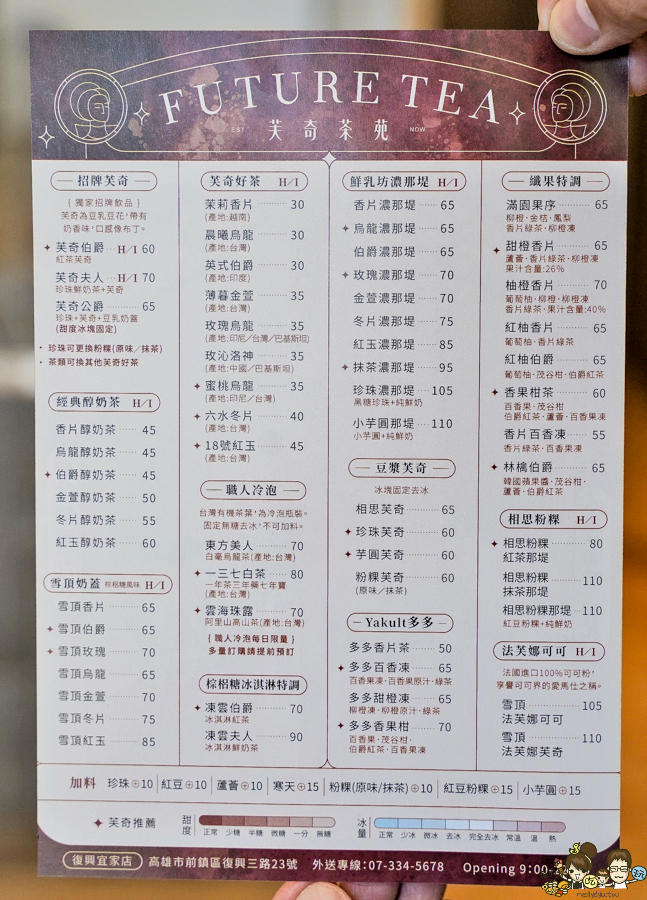 FUTURE TEA
EST 芙奇茶苑 NOW
招牌芙奇
{ 獨家招牌飲品 }
芙奇為豆乳豆花，帶有
奶香味，口感像布丁。
✦ 芙奇伯爵 ···· H/I 60
紅茶芙奇
芙奇夫人 ···· H/I 70
珍珠鮮奶茶+芙奇
芙奇公爵 ········ 65
珍珠+芙奇+豆乳奶蓋
(甜度冰塊固定)
• 珍珠可更換粉粿(原味/抹茶)
• 茶類可換其他芙奇好茶
經典醇奶茶 H/I
香片醇奶茶 ····· 45
烏龍醇奶茶 ····· 45
✦ 伯爵醇奶茶 ····· 45
金萱醇奶茶 ····· 50
冬片醇奶茶 ····· 55
紅玉醇奶茶 ····· 60
雪頂奶蓋 棕梠糖風味 H/I
雪頂香片 ········ 65
✦ 雪頂伯爵 ········ 65
✦ 雪頂玫瑰 ········ 70
雪頂烏龍 ········ 65
雪頂金萱 ········ 70
雪頂冬片 ········ 75
雪頂紅玉 ········ 85
芙奇好茶 H/I
茉莉香片 ········ 30
(產地:越南)
晨曦烏龍 ········ 30
(產地:台灣)
英式伯爵 ········ 30
(產地:印度)
薄暮金萱 ········ 35
(產地:台灣)
玫瑰烏龍 ········ 35
(產地:印尼/台灣/巴基斯坦)
玫沁洛神 ········ 35
(產地:中國/巴基斯坦)
✦ 蜜桃烏龍 ········ 35
(產地:印尼/台灣)
✦ 六水冬片 ········ 40
(產地:台灣)
✦ 18號紅玉 ········ 45
(產地:台灣)
職人冷泡
台灣有機茶葉，為冷泡瓶裝。
固定無糖去冰，不可加料。
東方美人 ········ 70
白毫烏龍茶(產地:台灣)
✦ 一三七白茶 ···· 80
一年茶三年藥七年寶
(產地:台灣)
✦ 雲海珠露 ········ 70
阿里山高山茶(產地:台灣)
{ 職人冷泡每日限量 }
多量訂購請提前預訂
棕梠糖冰淇淋特調
✦ 凍雲伯爵 ········ 70
冰淇淋紅茶
凍雲夫人 ········ 90
冰淇淋鮮奶茶
鮮乳坊濃那堤 H/I
香片濃那堤 ···· 65
✦ 烏龍濃那堤 ···· 65
伯爵濃那堤 ···· 65
✦ 玫瑰濃那堤 ···· 70
金萱濃那堤 ···· 70
冬片濃那堤 ···· 75
紅玉濃那堤 ···· 85
✦ 抹茶濃那堤 ···· 95
珍珠濃那堤 ··· 105
黑糖珍珠+純鮮奶
小芋圓濃那堤 ··· 110
小芋圓+純鮮奶
豆漿芙奇
冰塊固定去冰
相思芙奇 ········ 65
✦ 珍珠芙奇 ········ 60
✦ 芋圓芙奇 ········ 60
粉粿芙奇 ········ 60
(原味/抹茶)
Yakult多多
多多香片茶 ···· 50
✦ 多多百香凍 ···· 65
百香果凍·百香果原汁·綠茶
多多甜橙凍 ···· 65
柳橙凍·柳橙原汁·綠茶
✦ 多多香果柑 ···· 70
百香果·茂谷柑·
伯爵紅茶·百香果凍
纖果特調
滿園果序 ········ 65
柳橙·金桔·鳳梨
香片綠茶·柳橙凍
✦ 甜橙香片 ········ 65
蘆薈·香片綠茶·柳橙凍
果汁含量:26%
柚橙香片 ········ 70
葡萄柚·柳橙·柳橙凍
香片綠茶·果汁含量:40%
紅柚香片 ········ 65
葡萄柚·香片綠茶
紅柚伯爵 ········ 65
葡萄柚·茂谷柑·伯爵紅茶
✦ 香果柑茶 ········ 60
百香果·茂谷柑
伯爵紅茶·蘆薈·百香果凍
香片百香凍 ···· 55
香片綠茶·百香果凍
✦ 林檎伯爵 ········ 65
韓國蘋果醬·茂谷柑·
蘆薈·伯爵紅茶
相思粉粿 H/I
✦ 相思粉粿 ········ 80
紅茶那堤
相思粉粿 ········ 110
抹茶那堤
相思粉粿那堤 ··· 110
紅豆粉粿+純鮮奶
法芙娜可可 H/I
法國進口100%可可粉，
享譽可可界的愛馬仕之稱。
雪頂 ········ 105
法芙娜可可
雪頂 ········ 110
法芙娜芙奇
加料 珍珠⊕10 紅豆⊕10 蘆薈⊕10 寒天⊕15 粉粿(原味/抹茶)⊕10 紅豆粉粿⊕15 小芋圓⊕15
✦ 芙奇推薦 甜度 正常 少糖 半糖 微糖 一分 無糖 冰量 正常 少冰 微冰 去冰 完全去冰 常溫 溫 熱
復興宜家店 高雄市前鎮區復興三路23號 外送專線:07-334-5678 Opening 9:00-